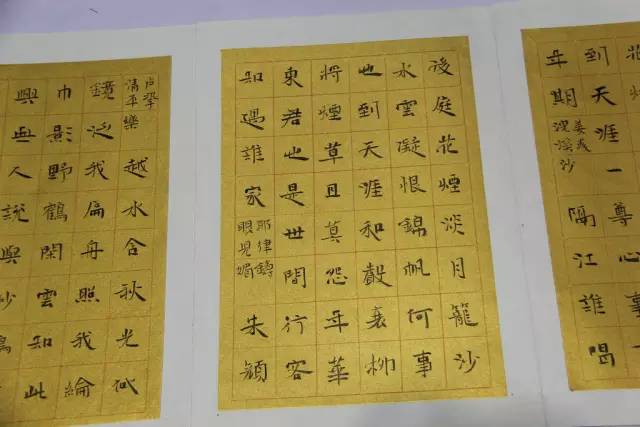 到天涯一尊心事
年期姜夔
浣溪沙
隔江誰唱
後庭花煙淡月籠沙
水雲凝恨錦帆何事
也到天涯和聲衰柳
將煙草且莫怨年華
東君也是世間行客
知遇誰家
耶律鑄
眼兒媚
朱穎
卢摯
清平樂
越水含秋光似
鏡泛我扁舟照我綸
巾影野鶴閑雲知此
興無人說與沙